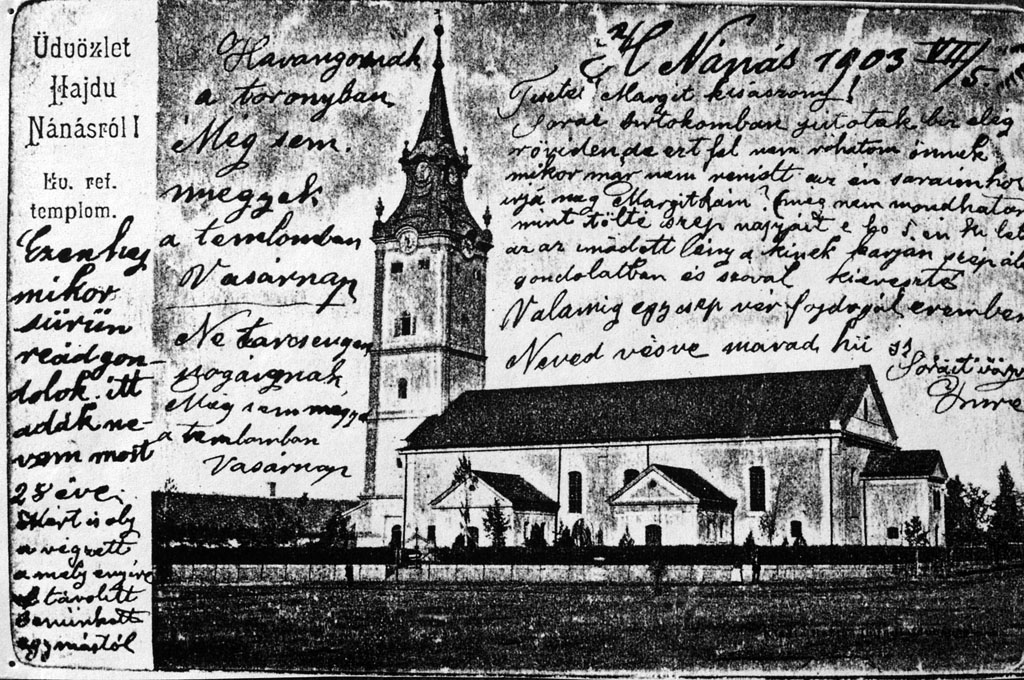 Üdvözlet
Hajdu
Nánásról!
Ev. ref.
templom.
Ezen hely
mikor
sürün
reád gon-
dolok. itt
adák ne-
vem most
28 éve.
a végzett
a mely ennyire
el távolitt
bennünket
egymástól
Harangoznak
a toronyban
Még sem
megyek
a temlomban
Vasárnap
Ne
Még sem megye
a temlomban
Vasárnap
H Nánás 1903 VII/5.
Tisztelt Margit kisasszony!
Sorai birtokomban jutotak bár elég
rövidend de ezt fel nem róhatom önnek
mikor már nem az én soraimhoz
irja meg Margitkám? meg nem mondhatom
mint tölté szép napjait e hó 5.én ki let
az az imádott lény a kinek karján
gondolatban és szóval
Valamig egy csep vér erembe
Neved vésve marad hü
Sorait
Imre